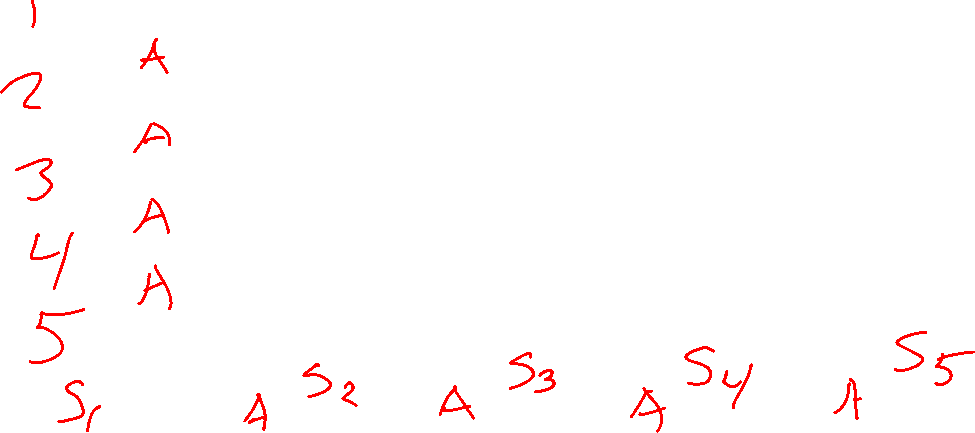 1
A
2
A
3
A
4
A
5
S1 A S2 A S3 A S4 A S5